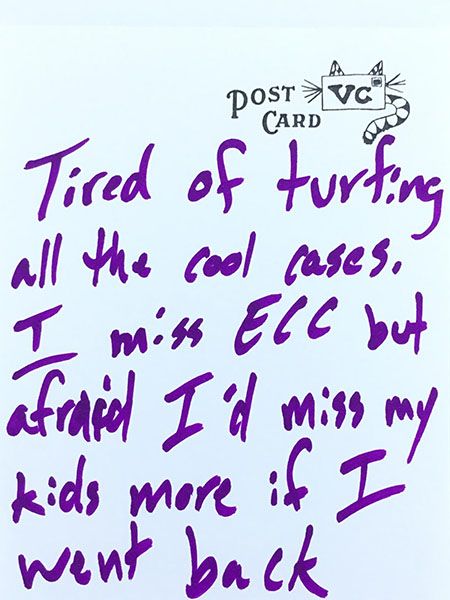 POST
CARD
VC
Tired of turfing
all the cool cases.
I miss ECC but
afraid I'd miss my
kids more if I
went back